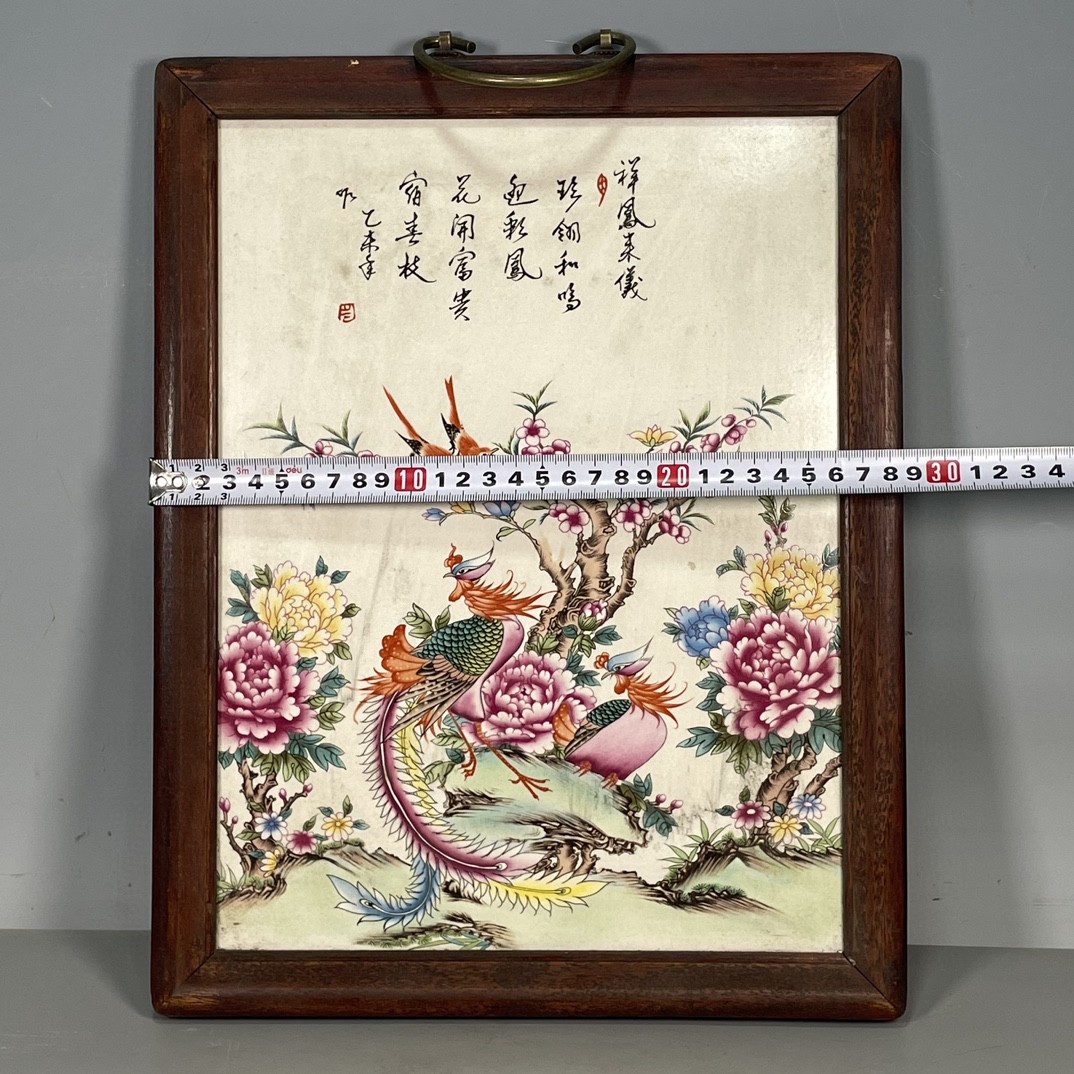 祥鳳来儀
珍翎和鳴
迎彩鳳
花開富貴
宿春枝
乙未年
1 2 3 3m
2 3 4 5 6 7 8 9 10 1 2 3 4 5 6 7 8 9 20 1 2 3 4 5 6 7 8 9 30 1 2 3 4
1 2 3